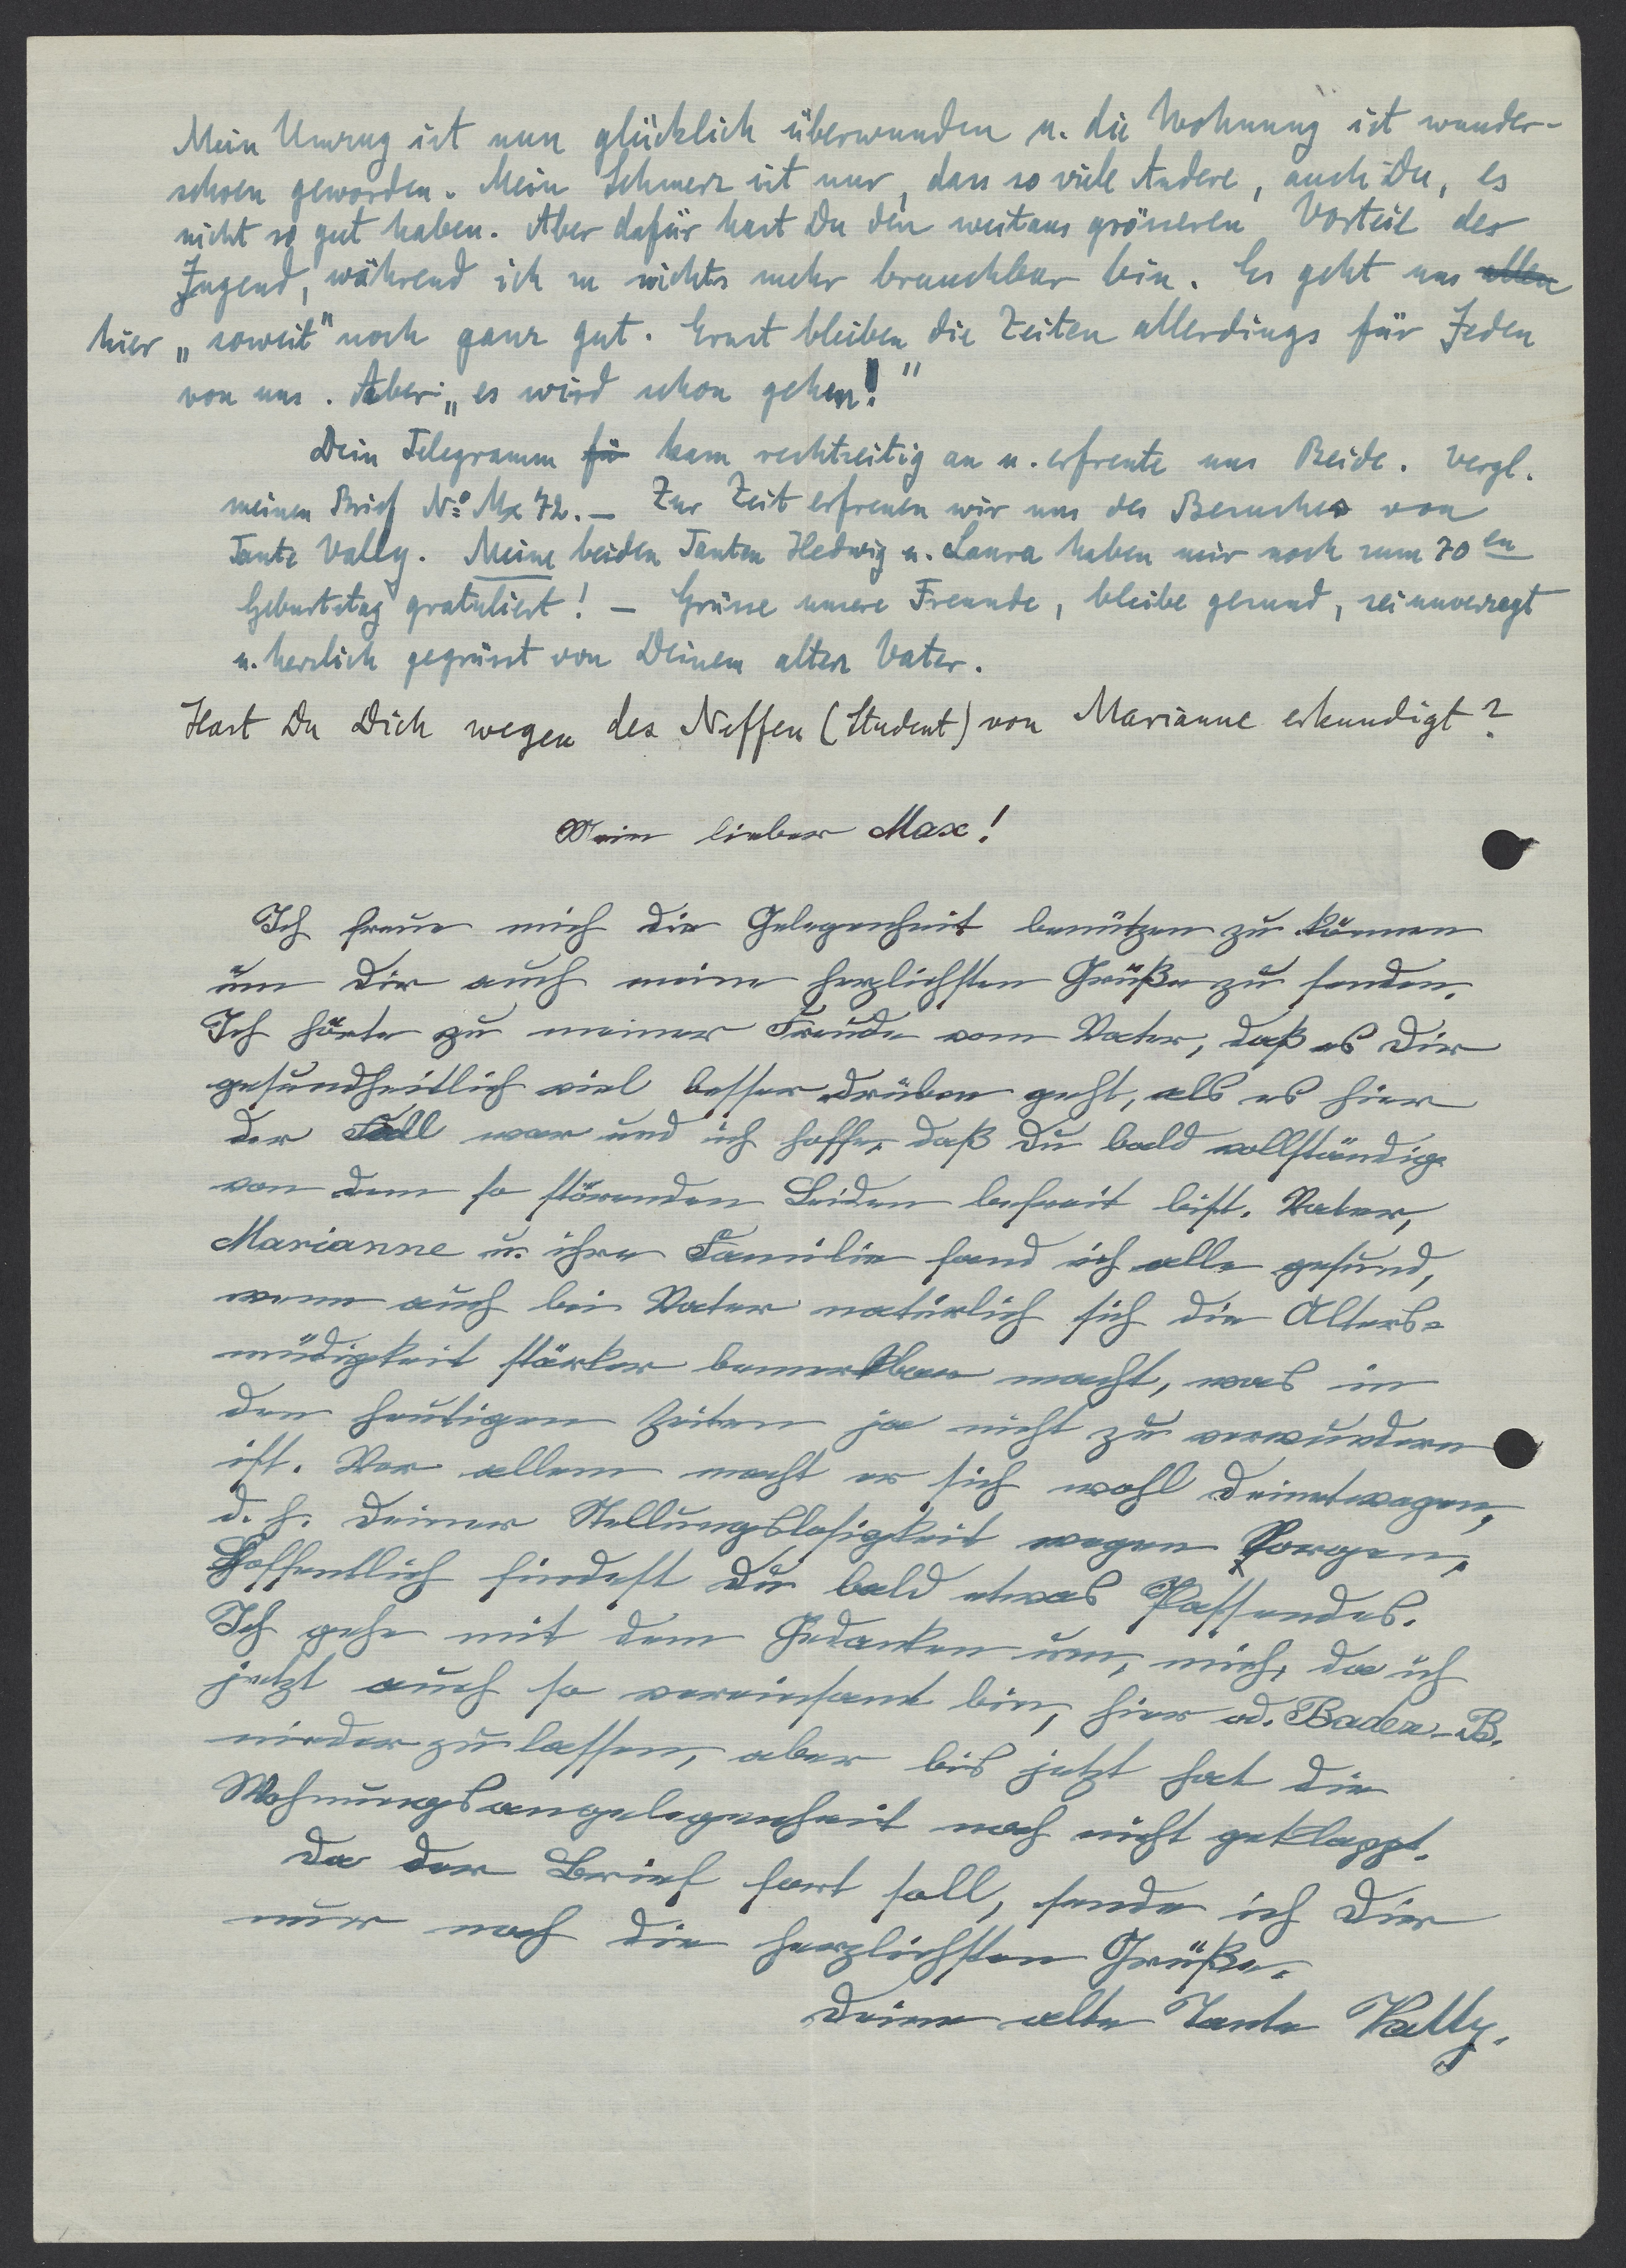 Mein Umzug ist nun glücklich überwunden u. die Wohnung ist wunder-
schoen geworden. Mein Schmerz ist nur, dass so viele Andere, auch Du, es
nicht so gut haben. Aber dafür hast Du den weitaus grösseren Vorteil der
Jugend, während ich zu nichts mehr brauchbar bin. Es geht uns allen
hier „soweit" noch ganz gut. Ernst bleiben die Zeiten allerdings für Jeden
von uns. Aber: „es wird schon gehen!"
Dein Telegramm fü kam rechtzeitig an u. erfreute uns Beide. Vergl.
meinen Brief No Mx 72. — Zur Zeit erfreuen wir uns des Besuches von
Tante Vally. Meine beiden Tanten Hedwig u. Laura haben mir noch zum 70en
Geburtstag gratuliert! — Grüsse unsere Freunde, bleibe gesund, sei unverzagt
u. herzlich gegrüsst von Deinem alten Vater.
Hast Du Dich wegen des Neffen (Student) von Marianne erkundigt?
Mein lieber Max!
Ich freue mich die Gelegenheit benützen zu können
um Dir auch meine herzlichsten Grüße zu senden.
Ich hörte zu meiner Freude vom Vater, daß es Dir
gesundheitlich viel besser drüben geht, als es hier
der Fall war und ich hoffe, daß Du bald vollständig
von dem so störenden Leiden befreit bist. Vater,
Marianne u. ihre Familie fand ich alle gesund,
wenn auch bei Vater natürlich sich die Alters-
müdigkeit stärker bemerkbar macht, was in
den heutigen Zeiten ja nicht zu verwundern
ist. Vor allem macht er sich wohl Deinetwegen,
d. h. Deiner Stellungslosigkeit wegen Sorgen.
Hoffentlich findest Du bald etwas Passendes.
Ich gehe mit dem Gedanken um, mich, da ich
jetzt auch so vereinsamt bin, hier od. Baden-B.
niederzulassen, aber bis jetzt hat die
Wohnungsangelegenheit noch nicht geklappt.
Da der Brief fort soll, sende ich Dir
nur noch die herzlichsten Grüße.
Deine alte Tante Vally.